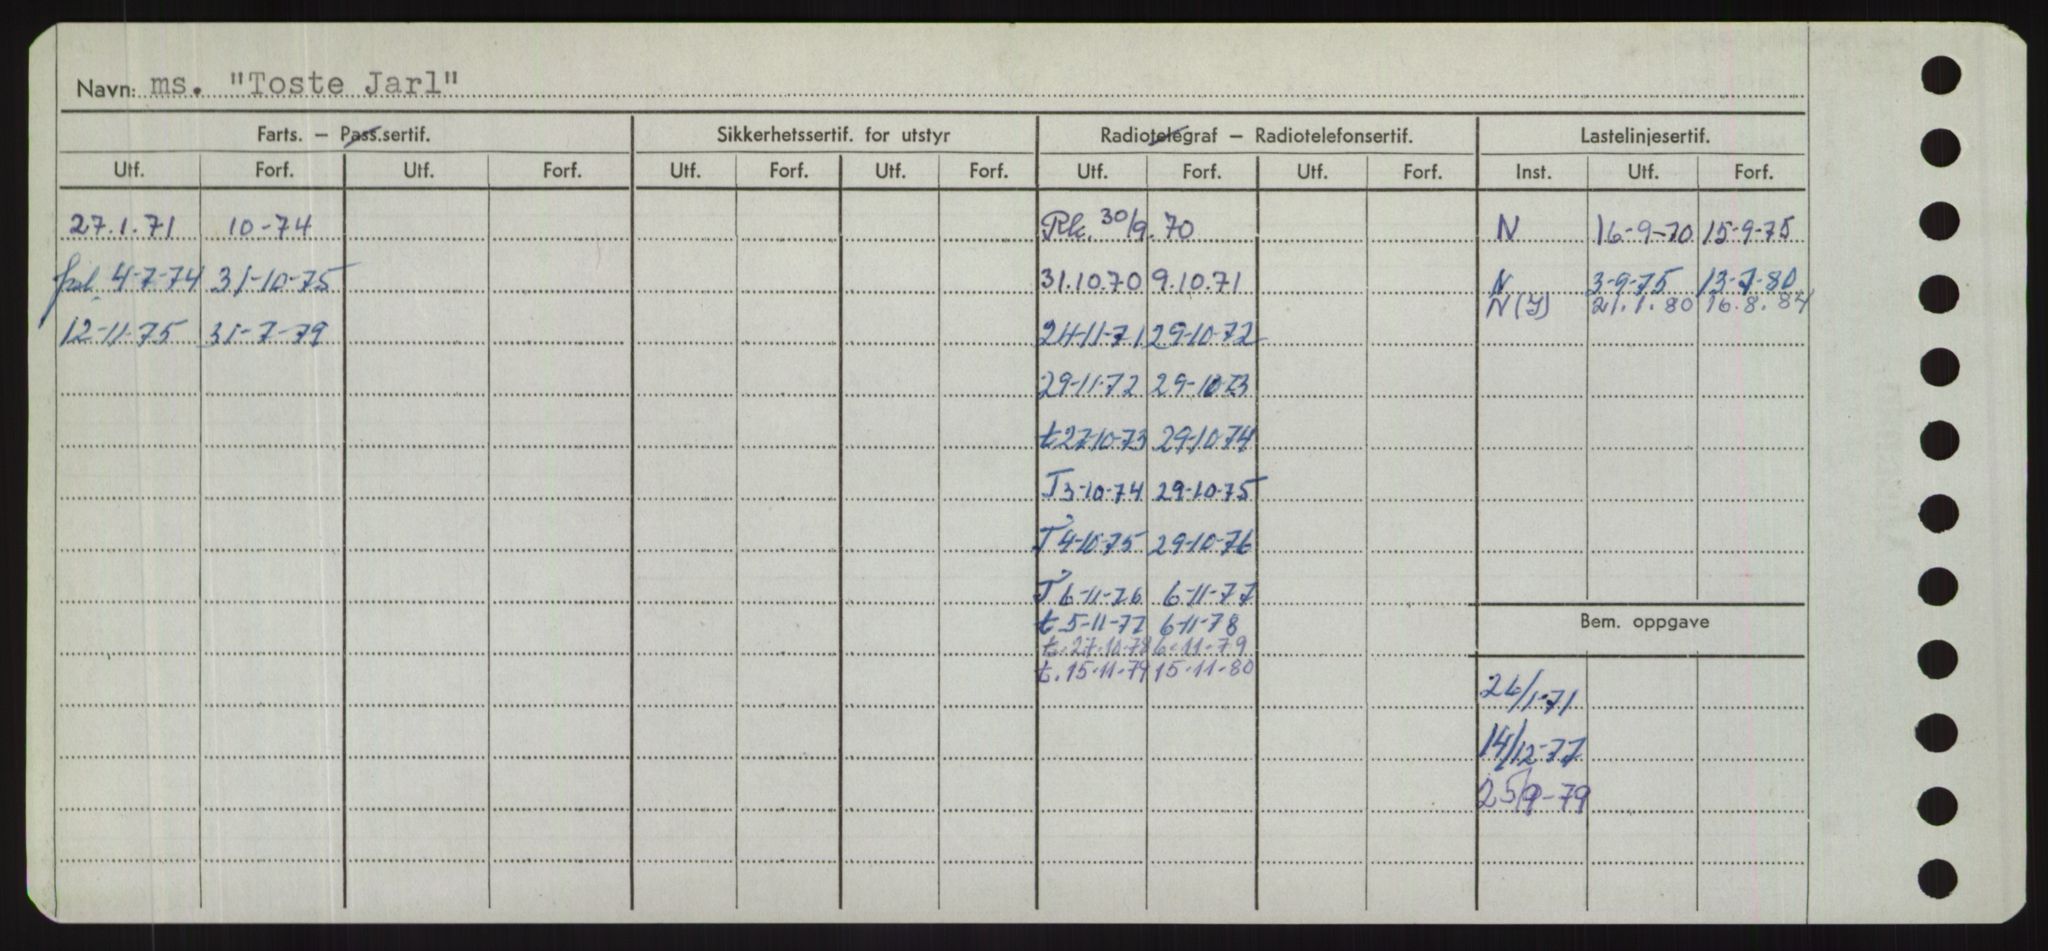 Navn: ms. "Toste Jarl"
Farts. – Pass.sertif. Sikkerhetssertif. for utstyr Radiotelegraf – Radiotelefonsertif. Lastelinjesertif.
Utf. Forf. Utf. Forf. Utf. Forf. Utf. Forf. Utf. Forf. Utf. Forf. Inst. Utf. Forf.
27.1.71 10-74 Rk. 30/9.70 N 16-9-70 15-9-75
4-7-74 31-10-75 31.10.70 9.10.71 N 3-9-75 13-7-80
N(Y) 21.1.80 16.8.84
12-11-75 31-7-79 24-11-71 29-10-72
29-11-72 29-10-73
t 27-10-73 29-10-74
T 3-10-74 29-10-75
T 4-10-75 29-10-76
T 6-11-76 6-11-77
t. 5-11-77 6-11-78 Bem. oppgave
t. 27.10-78 6-11-79
t. 15-11-79 15-11-80
26/1-71
14/12-77
25/9-79